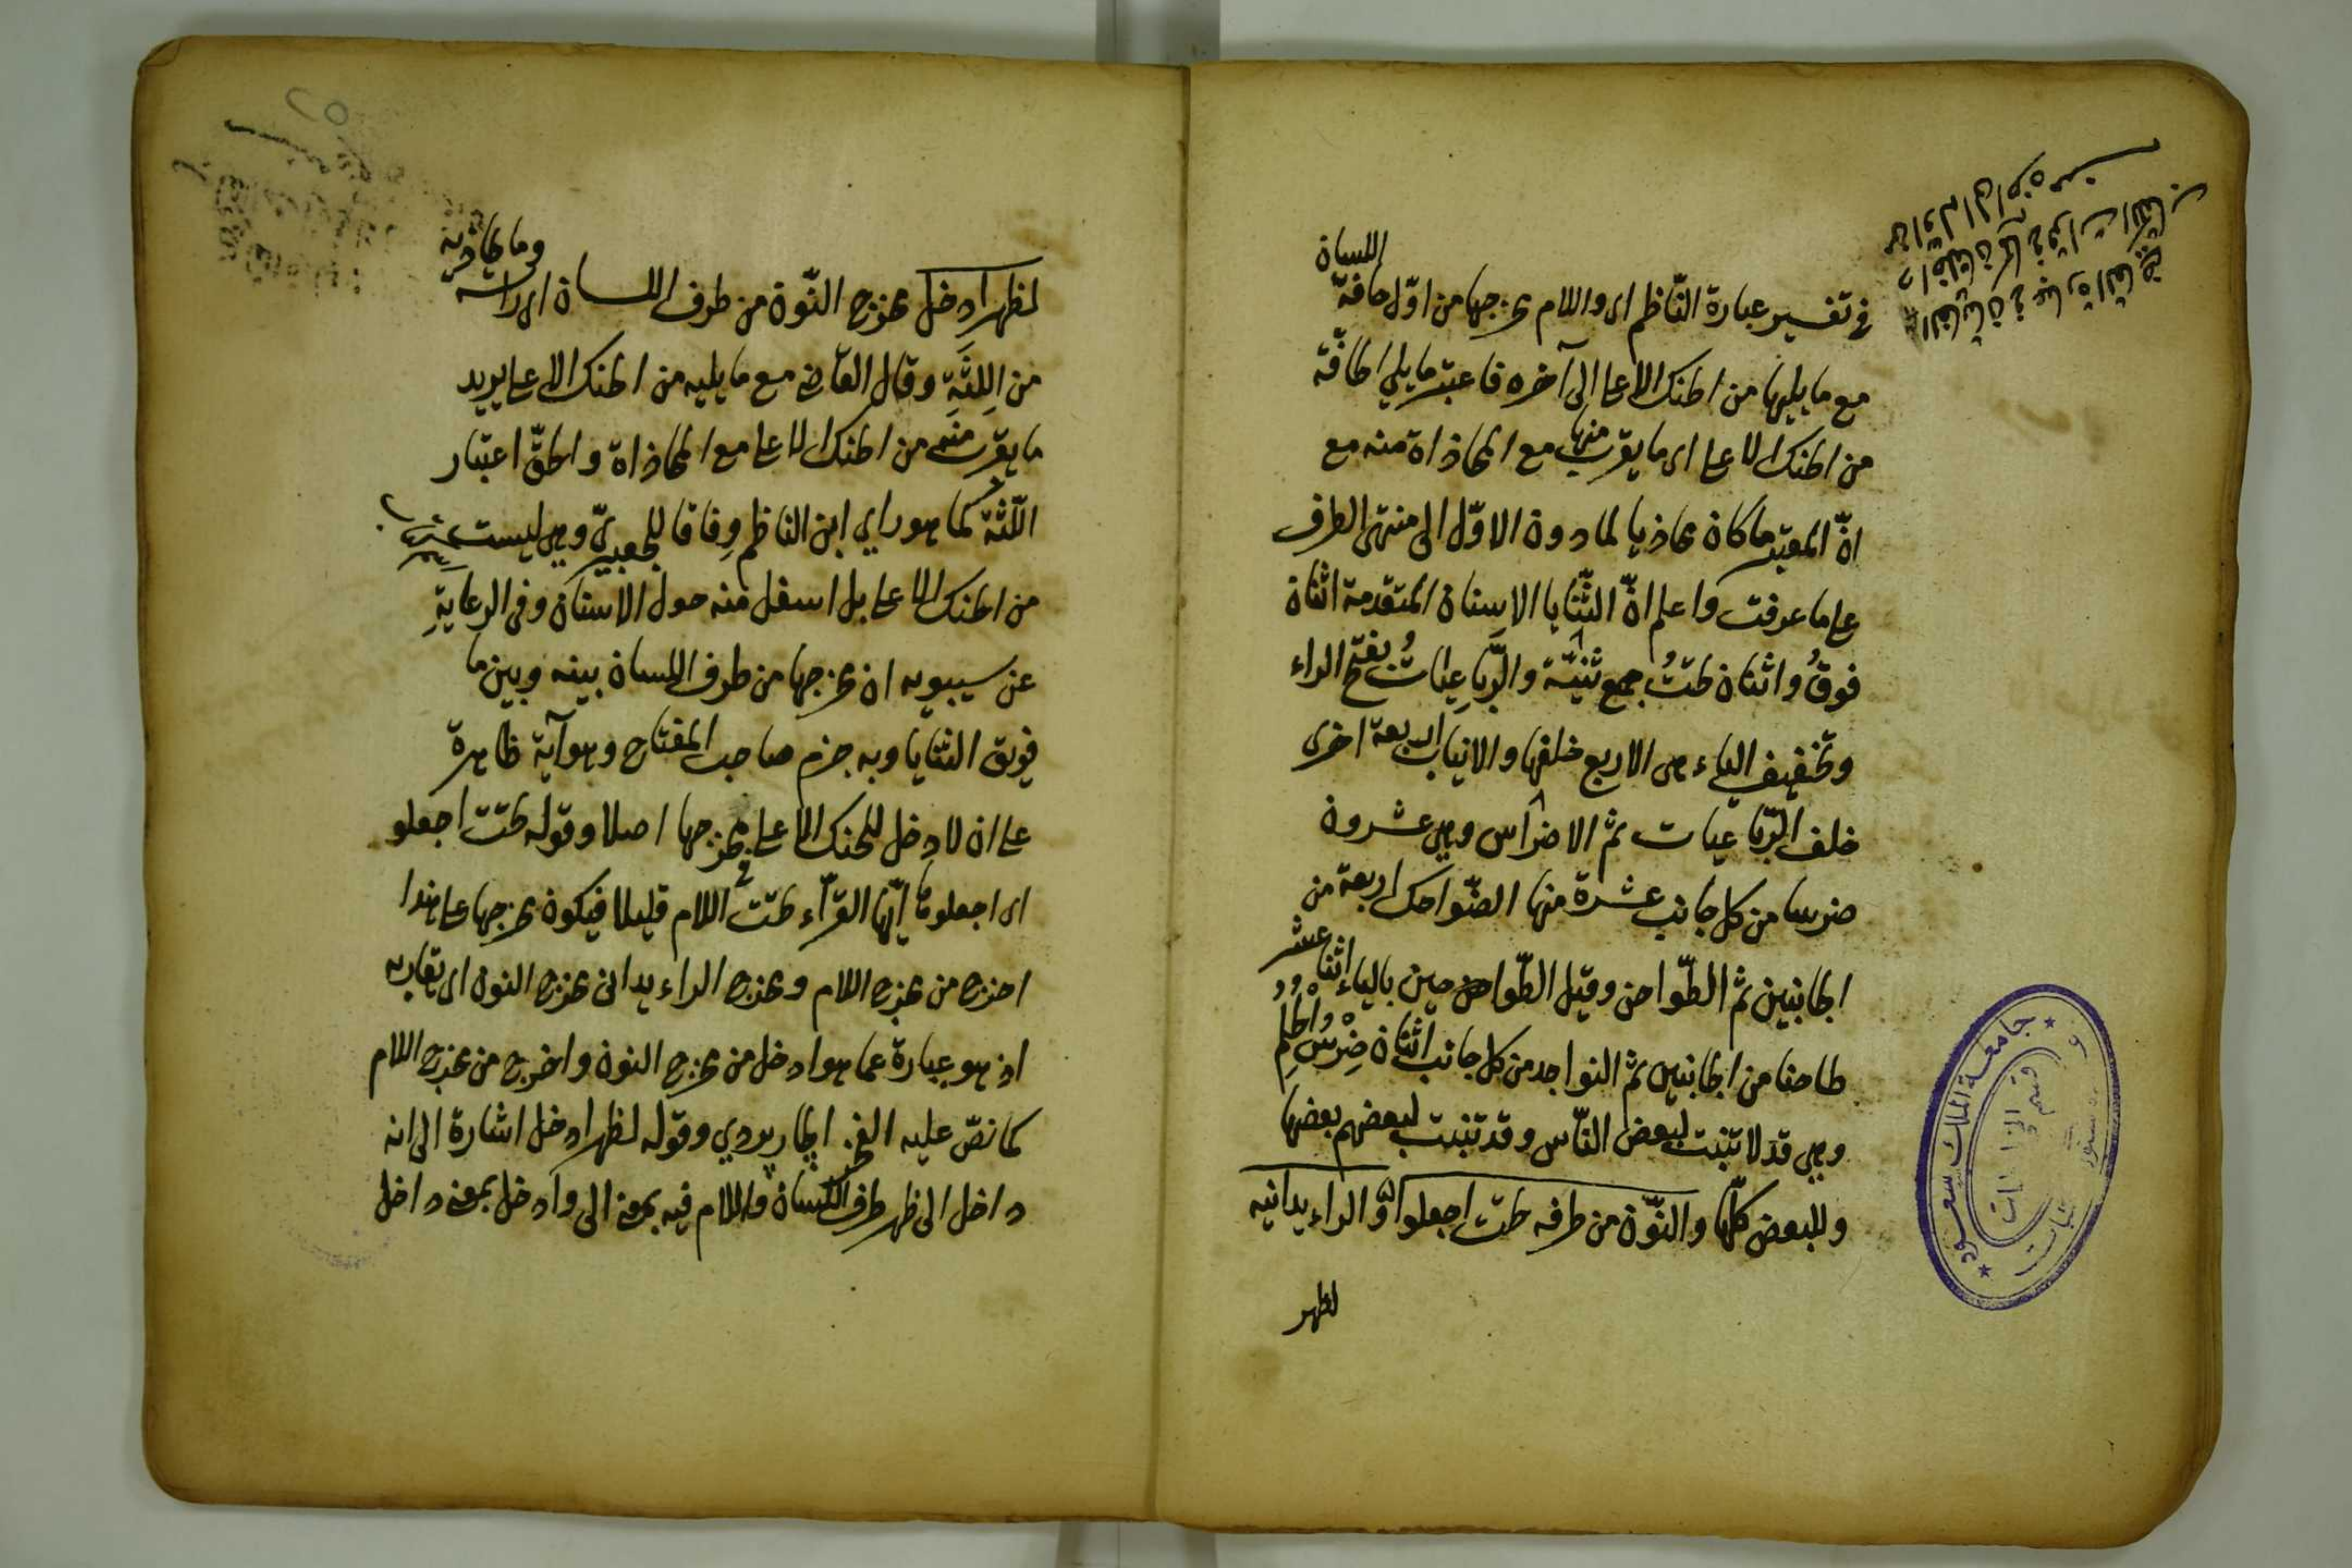 في تفسير عبارة النّاظم اى واللام مخرجها من اوّل حافة اللسان
مع ما يليها من الحنك الاعلى الى آخره فاعتبر ما يلي الحافّة
من الحنك الاعلى اى ما يقرب منها مع المحاذاة منه مع
انّ المعتبر ما كان محاذيا لما دون الاوّل الى منتهى الطرف
على ما عرفت واعلم انّ الثّنايا الاسنان المتقدمة اثنان
فوقُ واثنان تحتُ جمع ثنيّة والرَّباعِياتُ بفتح الراء
وتخفيف الياء هى الاربع خلفها والانياب اربعة اخرى
خلف الرّباعيات ثم الاضراس وهى عشرون
ضرسا من كل جانب عشرة منها الضّواحك اربعة من
الجانبين ثم الطّواحن وقيل الطّواحين بالياء اثنا عشر
طاحنا من الجانبين ثم النواجد من كل جانب اثنان ضِرْسُ الحُلُمِ
وهى قد لا تنبت لبعض النّاس وقد تنبت لبعضهم بعضها
وللبعض كلّها والنّون من طرفه تحت اجعلوا والراء يدانيه
لظهر
لظهر ادخل مخرج النّون من طرف اللسان اى راسه وما يحاذيه
من اللِثَةِ وقال القاضى مع ما يليه من الحنك الاعلى يريد
ما يقرب منه من الحنك الاعلى مع المحاذاة والحقّ اعتبار
اللّثة كما هو راي ابن الناظم وِفاقا للجعبريّ وهى ليست
من الحنك الاعلى بل اسفل منه حول الاسنان وفى الرعايةِ
عن سيبويه ان مخرجها من طرف اللسان بينه وبين ما
فويق الثنايا وبه جزم صاحب المفتاح وهو آية ظاهرة
على ان لا دخل للحنك الاعلى في مخرجها اصلا وقوله تحت اجعلو
اى اجعلوها ايّها القرّاء تحت اللام قليلا فيكون مخرجها على هذا
اخرج من مخرج اللام ومخرج الراء يدانى مخرج النون اى يقاربه
اذ هو عبارة عما هو ادخل من مخرج النون واخرج من مخرج اللام
كما نصّ عليه الفخر الجاربردي وقوله لظهر ادخل اشارة الى انه
داخل الى ظهر طرف اللّسان واللام فيه بمعنى الى وادخل بمعنى داخل
جامعة الملك سعود
قسم